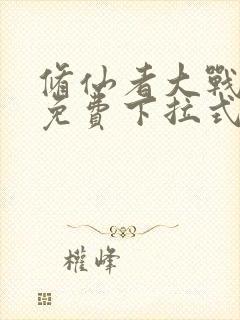 修仙者大戰
免費下拉式
權峰